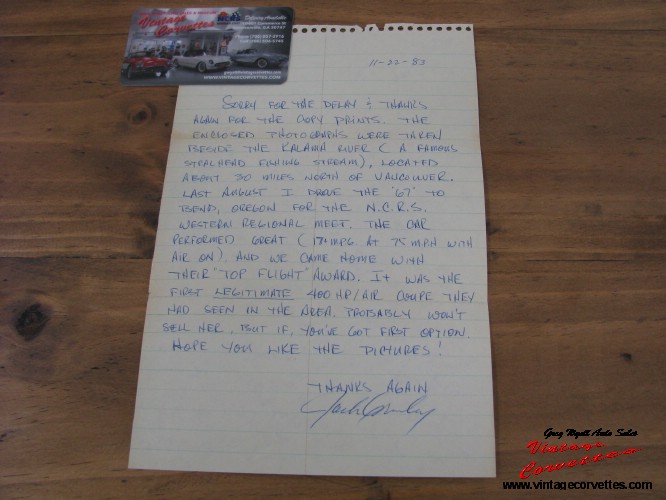 Vintage
Corvettes
WWW.VINTAGECORVETTES.COM
11-22-83
SORRY FOR THE DELAY & THANKS
AGAIN FOR THE COPY PRINTS. THE
ENCLOSED PHOTOGRAPHS WERE TAKEN
BESIDE THE KALAMA RIVER (A FAMOUS
STEALHEAD FISHING STREAM), LOCATED
ABOUT 30 MILES NORTH OF VANCOUVER.
LAST AUGUST I DROVE THE '67' TO
BEND, OREGON FOR THE N.C.R.S.
WESTERN REGIONAL MEET. THE CAR
PERFORMED GREAT (17+MPG. AT 75 MPH WITH
AIR ON). AND WE CAME HOME WITH
THEIR "TOP FLIGHT" AWARD. IT WAS THE
FIRST LEGITIMATE 400 HP/AIR COUPE THEY
HAD SEEN IN THE AREA. PROBABLY WON'T
SELL HER. BUT IF, YOU'VE GOT FIRST OPTION.
HOPE YOU LIKE THE PICTURES!
THANKS AGAIN
Jack
Greg Wyatt Auto Sales
Vintage
Corvettes
www.vintagecorvettes.com